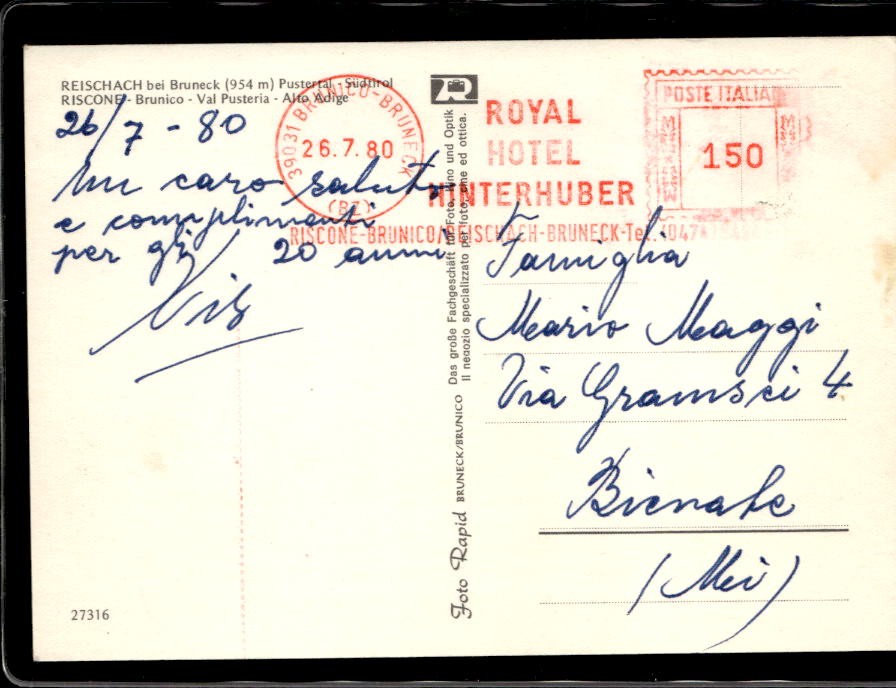 REISCHACH bei Bruneck (954 m) Pustertal - Südtirol
RISCONE - Brunico - Val Pusteria - Alto Adige
26/7 - 80
Un caro saluto
e complimenti
per gli 20 anni
39031 BRUNICO-BRUNECK
26.7.80
(BZ)
ROYAL
HOTEL
HINTERHUBER
RISCONE-BRUNICO/REISCHACH-BRUNECK-Tel. (0474)
POSTE ITALIA
150
Famiglia
Mario Maggi
Via Gramsci 4
Bienate
(Mi)
Das große Fachgeschäft für Foto, Kino und Optik
Il negozio specializzato per foto, cine ed ottica.
Foto Rapid BRUNECK/BRUNICO
27316